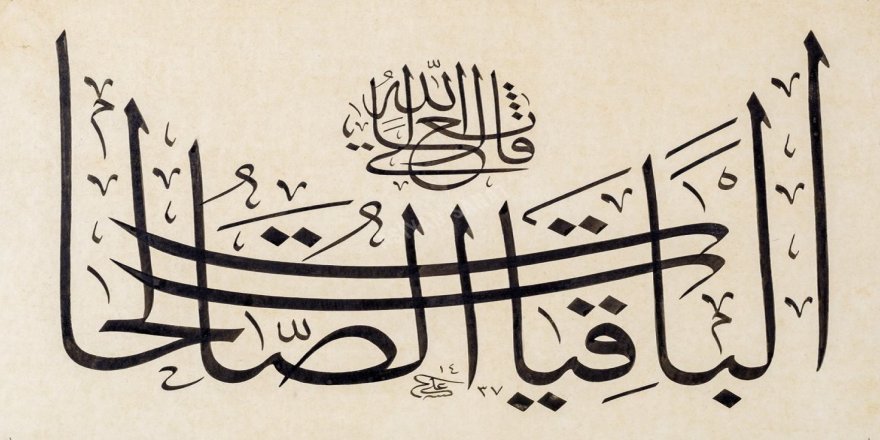 قال الله تعالى
الباقيات الصالحات
علي
١٤٣٧